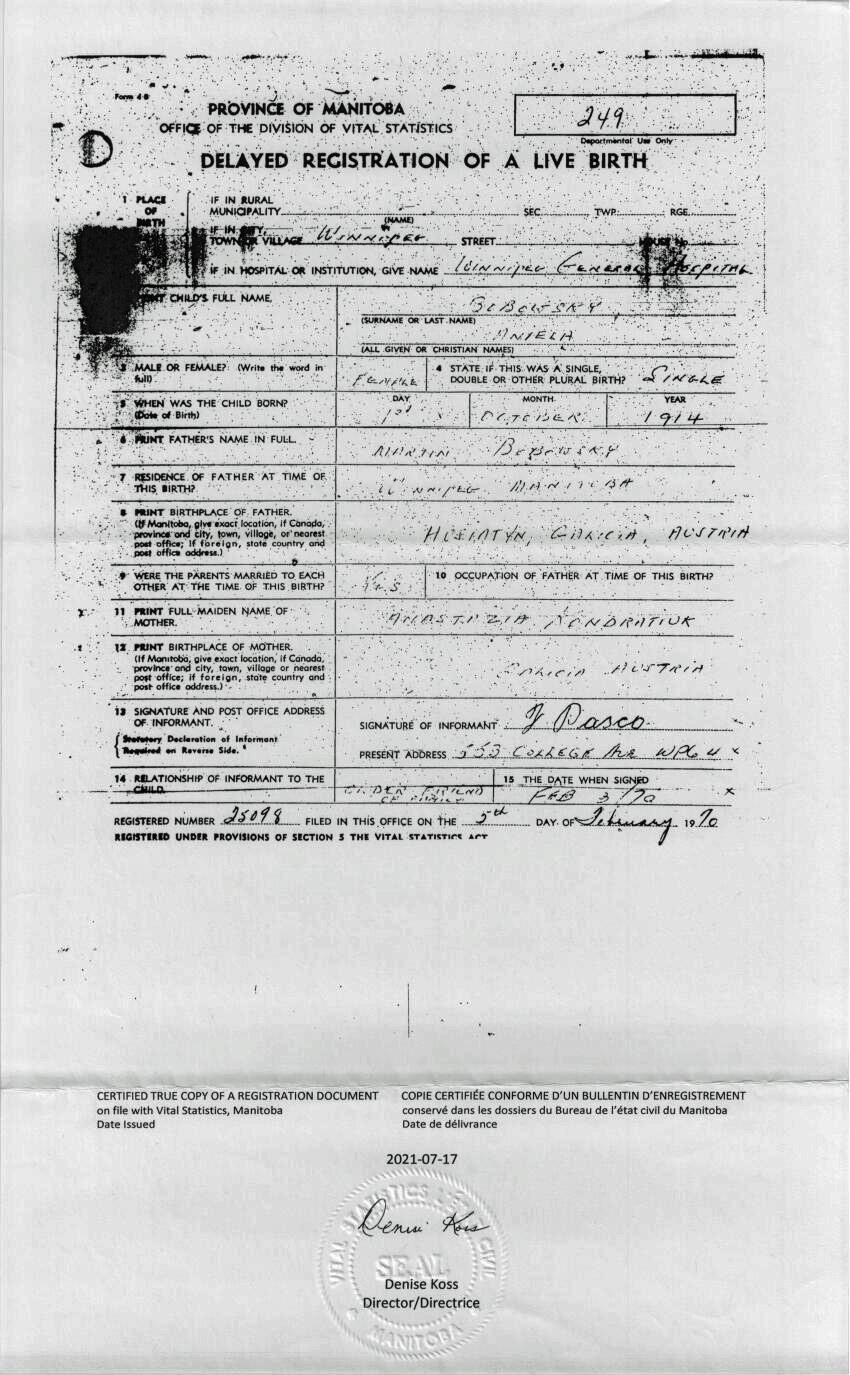 Form 4-B
PROVINCE OF MANITOBA
OFFICE OF THE DIVISION OF VITAL STATISTICS
249
Departmental Use Only
D
DELAYED REGISTRATION OF A LIVE BIRTH
1 PLACE OF BIRTH
IF IN RURAL MUNICIPALITY SEC. TWP. RGE.
(NAME)
IF IN CITY, TOWN OR VILLAGE in WINNIPEG STREET HOUSE No.
IF IN HOSPITAL OR INSTITUTION, GIVE NAME WINNIPEG GENERAL HOSPITAL
PRINT CHILD'S FULL NAME, BOBOWSKY
(SURNAME OR LAST NAME)
ANIELA
(ALL GIVEN OR CHRISTIAN NAMES)
3 MALE OR FEMALE? (Write the word in full) FEMALE
4 STATE IF THIS WAS A SINGLE, DOUBLE OR OTHER PLURAL BIRTH? SINGLE
5 WHEN WAS THE CHILD BORN? (Date of Birth)
DAY MONTH YEAR
1st OCTOBER 1914
6 PRINT FATHER'S NAME IN FULL. MARTIN BOBOWSKY
7 RESIDENCE OF FATHER AT TIME OF THIS BIRTH? WINNIPEG MANITOBA
8 PRINT BIRTHPLACE OF FATHER.
(If Manitoba, give exact location, if Canada,
province and city, town, village, or nearest
post office; if foreign, state country and
post office address.)
HUSIATYN, GALICIA, AUSTRIA
9 WERE THE PARENTS MARRIED TO EACH OTHER AT THE TIME OF THIS BIRTH? YES
10 OCCUPATION OF FATHER AT TIME OF THIS BIRTH?
11 PRINT FULL MAIDEN NAME OF MOTHER. ANASTAZIA KONDRATIUK
12 PRINT BIRTHPLACE OF MOTHER.
(If Manitoba, give exact location, if Canada,
province and city, town, village or nearest
post office; if foreign, state country and
post office address.)
GALICIA AUSTRIA
13 SIGNATURE AND POST OFFICE ADDRESS OF INFORMANT.
Statutory Declaration of Informant
Required on Reverse Side.
SIGNATURE OF INFORMANT J Pasco
PRESENT ADDRESS 553 COLLEGE Ave WPG 4
14 RELATIONSHIP OF INFORMANT TO THE CHILD. OLDER FRIEND OF FAMILY
15 THE DATE WHEN SIGNED FEB 3/70
REGISTERED NUMBER 25098 FILED IN THIS OFFICE ON THE 5th DAY OF February 1970
REGISTERED UNDER PROVISIONS OF SECTION 5 THE VITAL STATISTICS ACT
CERTIFIED TRUE COPY OF A REGISTRATION DOCUMENT
on file with Vital Statistics, Manitoba
Date Issued
COPIE CERTIFIÉE CONFORME D'UN BULLENTIN D'ENREGISTREMENT
conservé dans les dossiers du Bureau de l'état civil du Manitoba
Date de délivrance
2021-07-17
Denise Koss
VITAL STATISTICS
CIVIL
SEAL
MANITOBA
Denise Koss
Director/Directrice